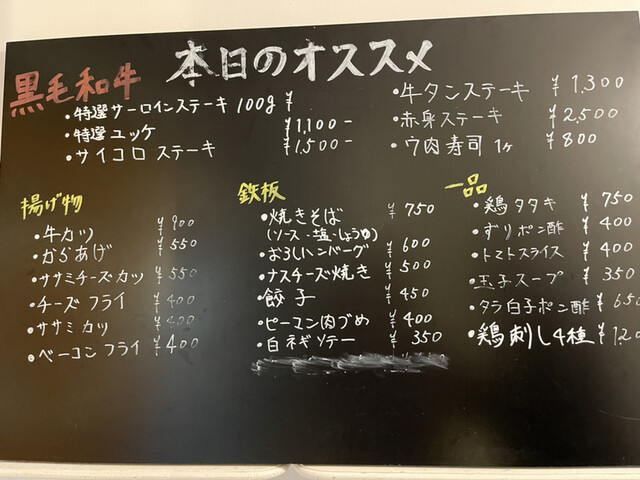 本日のオススメ
黒毛和牛
・特選サーロインステーキ 100g ¥
・特選ユッケ ¥1,100-
・サイコロステーキ ¥1,500-
・牛タンステーキ ¥1,300
・赤身ステーキ ¥2,500
・ウ肉寿司 1ヶ ¥800
揚げ物
・牛カツ ¥900
・からあげ ¥550
・ササミチーズカツ ¥550
・チーズフライ ¥400
・ササミカツ ¥400
・ベーコンフライ ¥400
鉄板
・焼きそば ¥750
(ソース・塩・しょうゆ)
・おろしハンバーグ ¥600
・ナスチーズ焼き ¥500
・餃子 ¥450
・ピーマン肉づめ ¥400
・白ネギソテー ¥350
一品
・鶏タタキ ¥750
・ずりポン酢 ¥400
・トマトスライス ¥400
・玉子スープ ¥350
・タラ白子ポン酢 ¥650
・鶏刺し4種 ¥1,20